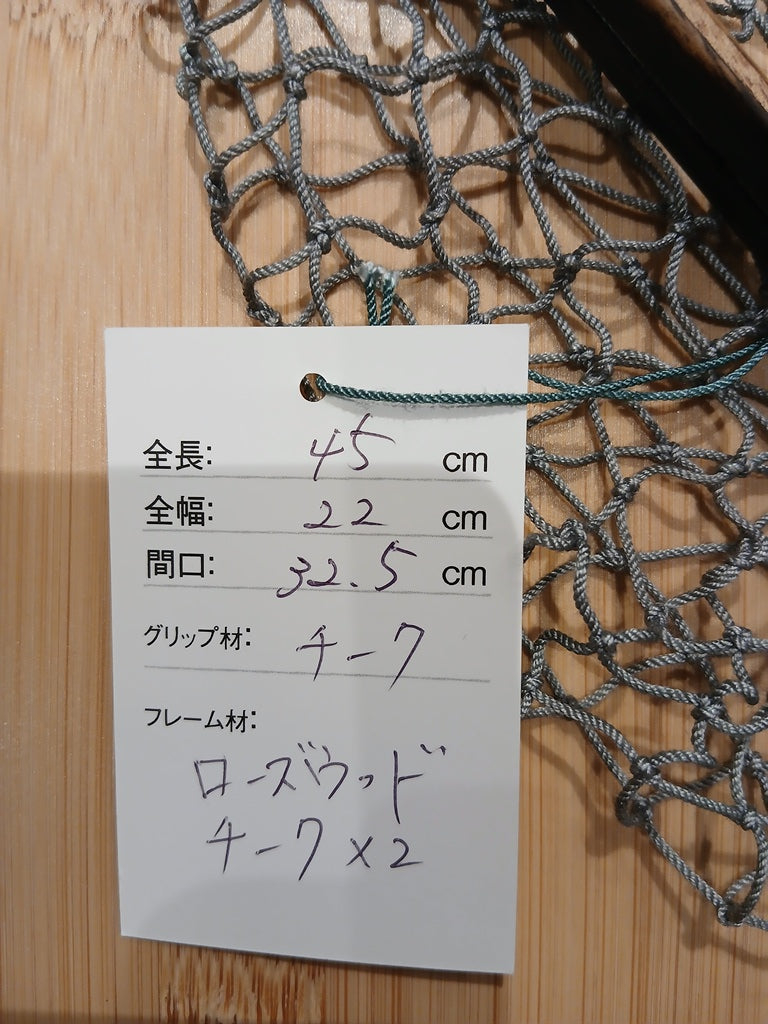 全長: 45 cm
全幅: 22 cm
間口: 32.5 cm
グリップ材: チーク
フレーム材:
ローズウッド
チーク×2